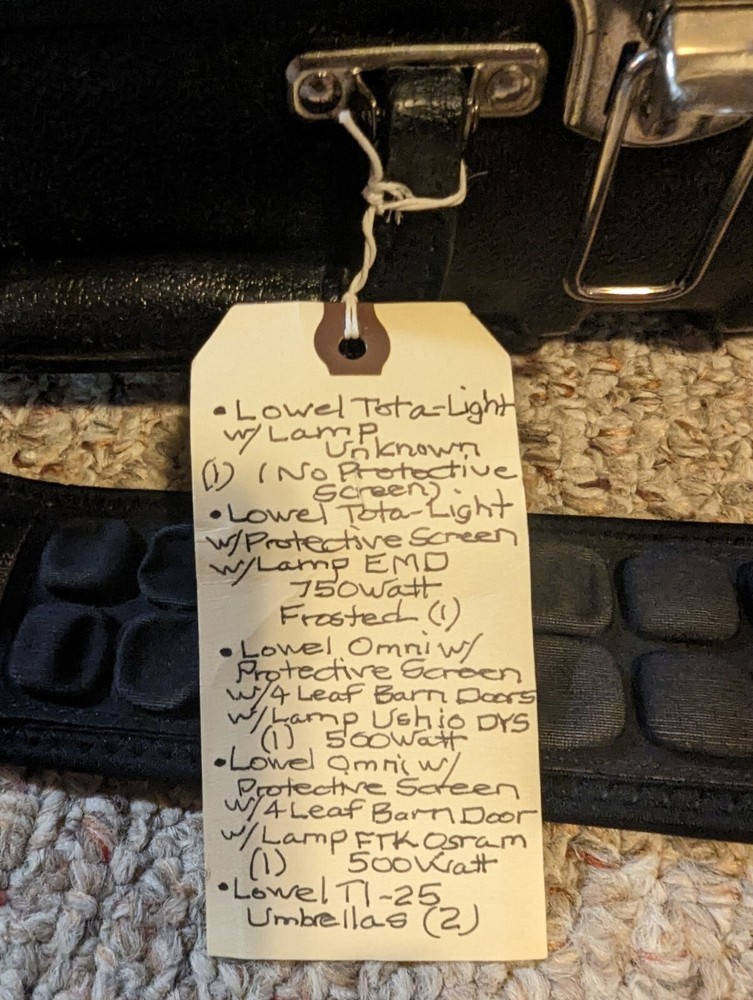 • Lowel Tota-Light
w/Lamp
Unknown
(1) (No Protective
Screen).
• Lowel Tota-Light
w/Protective Screen
w/Lamp EMD
750Watt
Frosted (1)
• Lowel Omni w/
Protective Screen
w/4 Leaf Barn Doors
w/Lamp Ushio DYS
(1) 500Watt
• Lowel Omni w/
Protective Screen
w/4 Leaf Barn Door
w/Lamp FTK Osram
(1) 500Watt
• Lowel T1-25
Umbrellas (2)